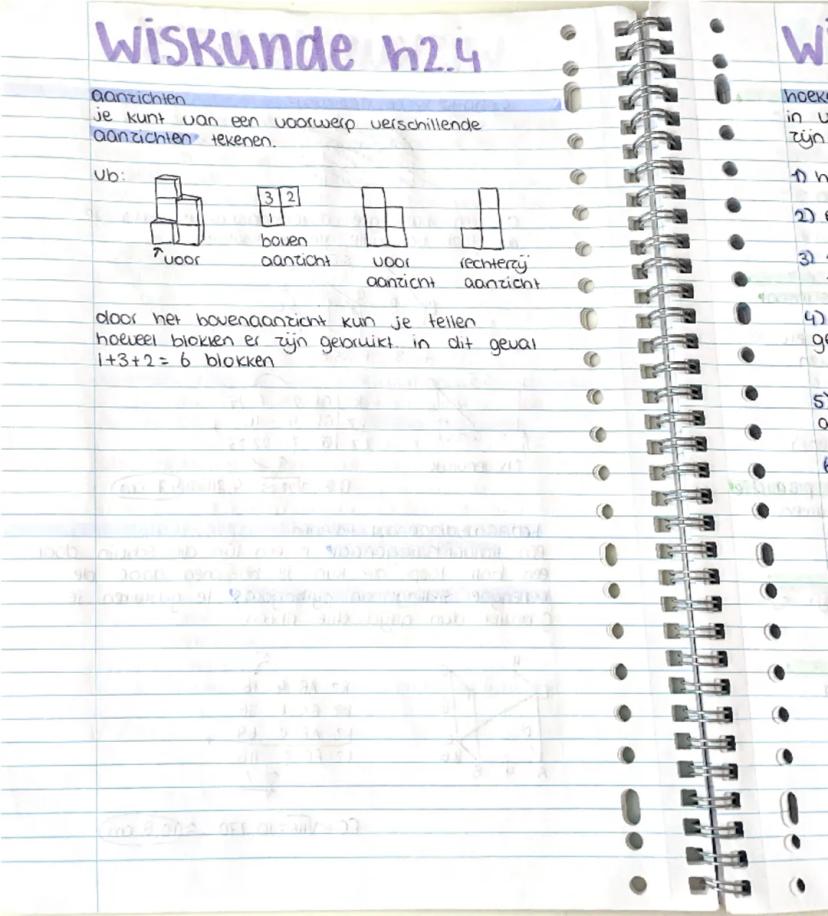 Wiskunde h2.4
aanzichten
je kunt van een voorwerp verschillende
aanzichten tekenen.
vb:
3 2
1
↑voor
boven
aanzicht
voor
aanzicht
rechterzij
aanzicht
door het bovenaanzicht kun je tellen
hoeveel blokken er zijn gebruikt. in dit geval
1+3+2= 6 blokken
Wi
hoek
in v
zijn
1) h
2)
3)
4)
ge
5)